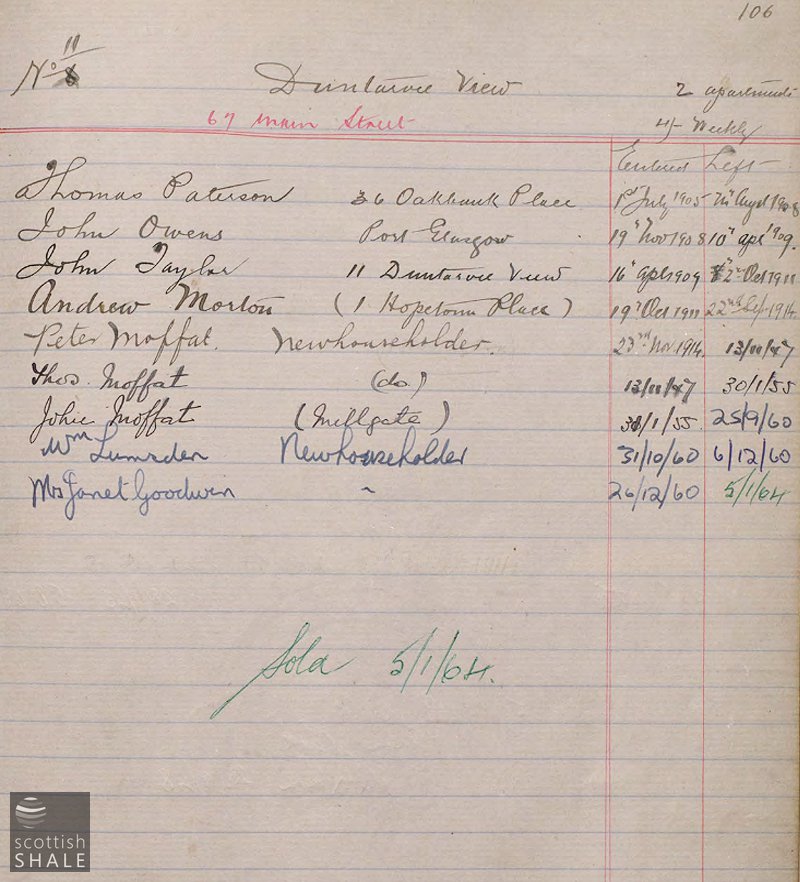 106
No 11 8
Duntarvie View 2 apartments
67 Main Street 4/- Weekly
Entered Left
Thomas Paterson 36 Oakbank Place 1st July 1905 1908
John Owens Port Glasgow 19th Nov 1908 10th apl 1909.
John Taylor 11 Duntarvie View 16th Apl 1909 2nd Oct 1911
Andrew Morton (1 Hopetoun Place) 19th Oct 1911 22nd Sep 1914.
Peter Moffat. Newhouseholder. 23rd Nov 1914. 13/11/47
Thos. Moffat (do.) 13/11/47 30/1/55
John Moffat (Millgate) 31/1/55. 25/9/60
Wm Lumsden Newhouseholder 31/10/60 6/12/60
Mrs Janet Goodwin ~ 26/12/60 5/1/64
Sold 5/1/64.
scottish
SHALE